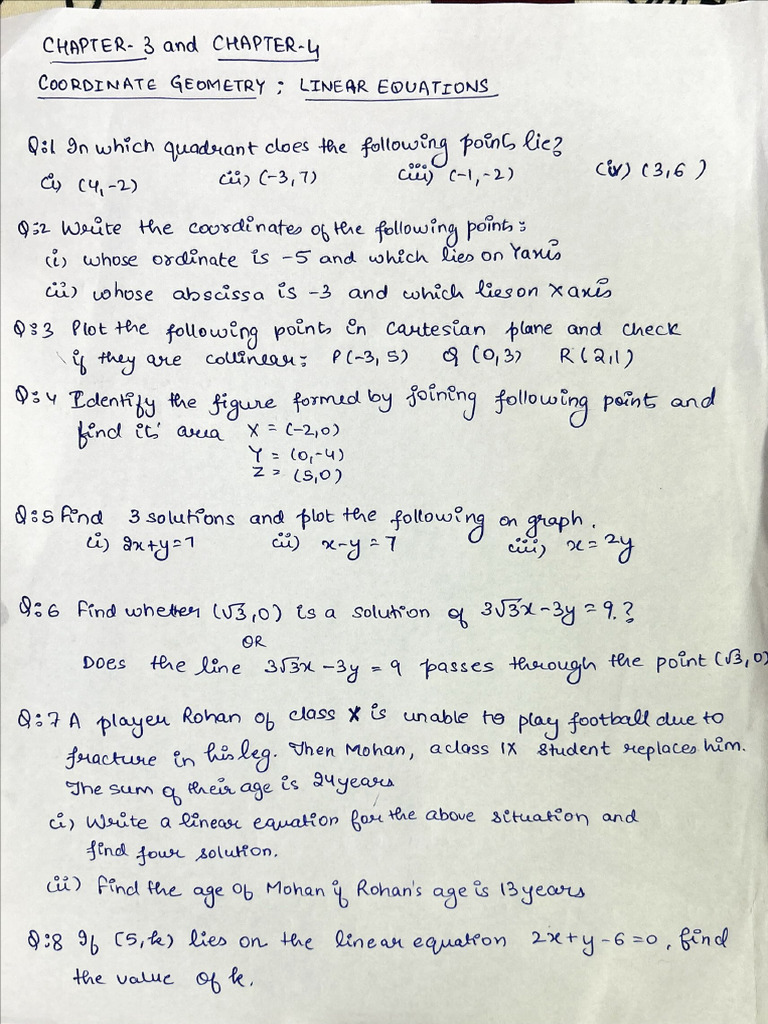 CHAPTER- 3 and CHAPTER-4
COORDINATE GEOMETRY ; LINEAR EQUATIONS
Q:1 In which quadrant does the following points lie?
(i) (4,-2) (ii) (-3,7) (iii) (-1,-2) (iv) (3,6)
Q:2 Write the coordinates of the following points:
(i) whose ordinate is -5 and which lies on Yaxis
(ii) whose abscissa is -3 and which lies on X axis
Q:3 Plot the following points in Cartesian plane and check
if they are collinear: P(-3, 5) Q (0,3) R (2,1)
Q:4 Identify the figure formed by joining following points and
find its' area X = (-2,0)
Y = (0,-4)
Z = (5,0)
Q:5 Find 3 solutions and plot the following on graph.
(i) 2x+y=7 (ii) x-y=7 (iii) x=2y
Q:6 Find whether (√3,0) is a solution of 3√3x-3y=9.?
OR
Does the line 3√3x-3y=9 passes through the point (√3,0)
Q:7 A player Rohan of class X is unable to play football due to
fracture in his leg. Then Mohan, a class IX student replaces him.
The sum of their age is 24 years
(i) Write a linear equation for the above situation and
find four solution.
(ii) Find the age of Mohan if Rohan's age is 13 years
Q:8 If (5,k) lies on the linear equation 2x+y-6=0, find
the value of k.